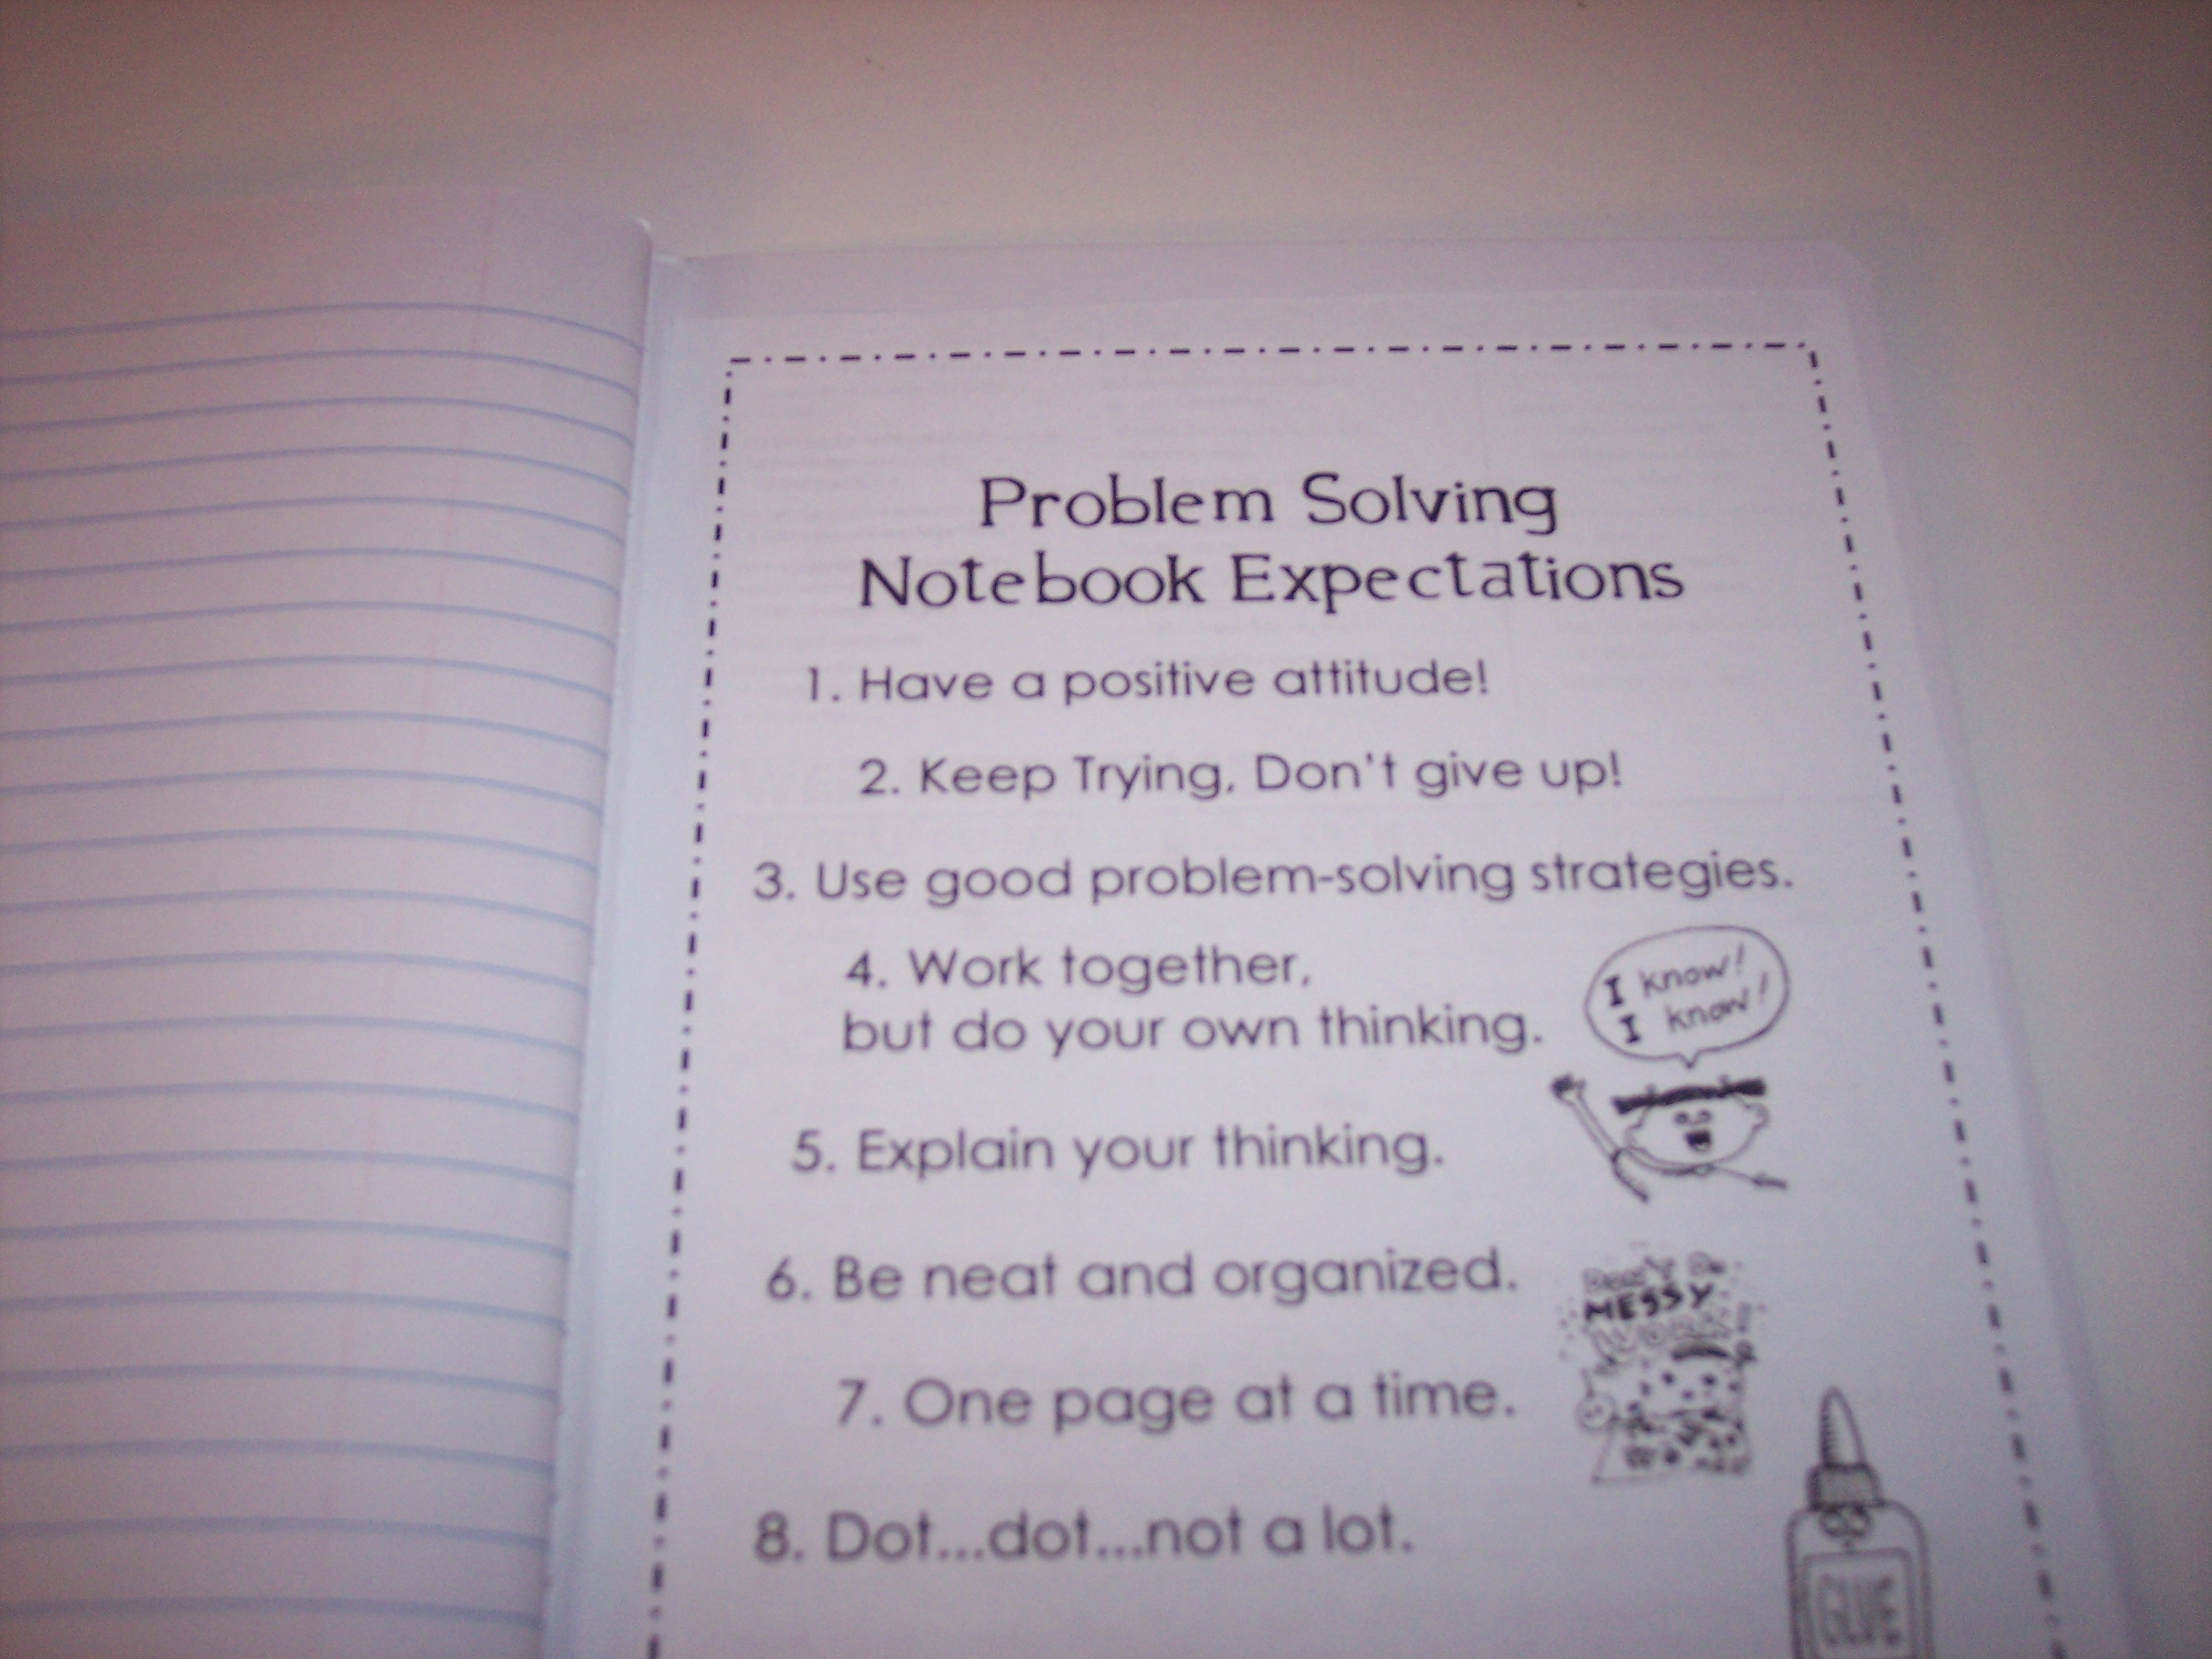 Problem Solving
Notebook Expectations
1. Have a positive attitude!
2. Keep Trying, Don't give up!
3. Use good problem-solving strategies.
4. Work together,
but do your own thinking.
I know!
I know!
5. Explain your thinking.
6. Be neat and organized.
MESSY
7. One page at a time.
8. Dot...dot...not a lot.
GLUE